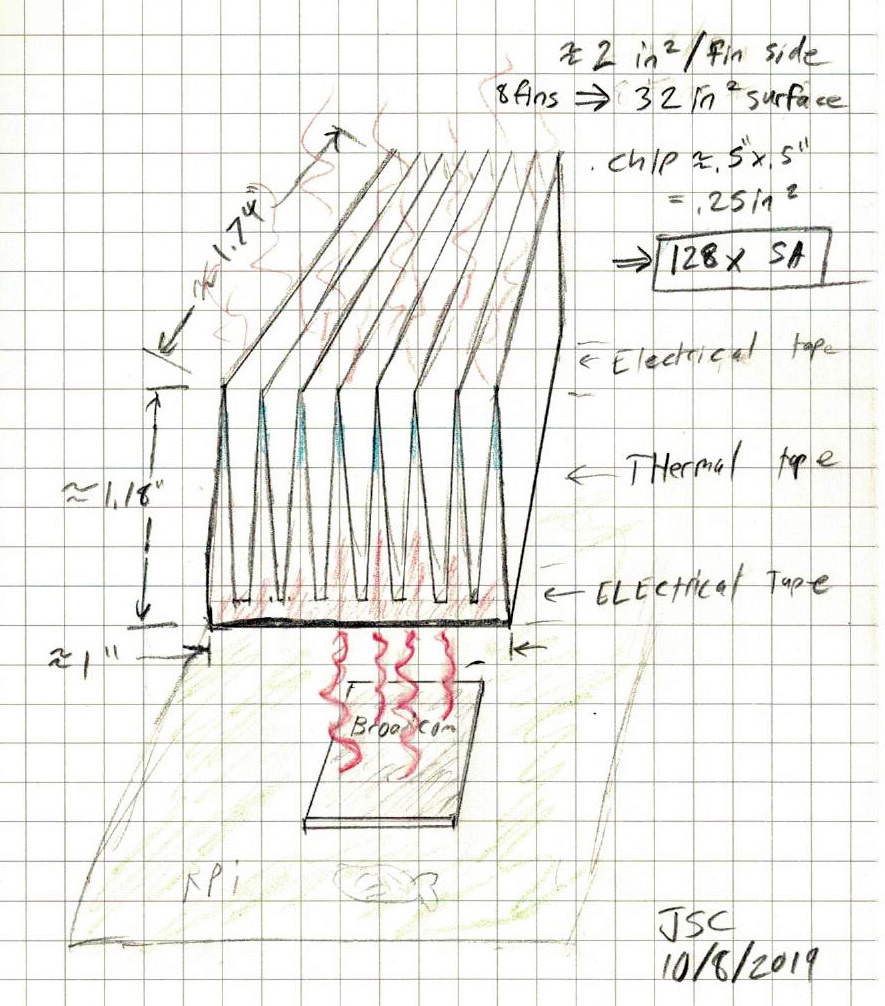 ≈ 2 in²/fin side
8 fins ⇒ 32 in² surface
chip ≈ .5"x.5"
= .25in²
⇒ 128x SA
≈ 1.74"
← Electrical tape
← THermal tape
≈ 1.18"
← ELEctrical Tape
≈ 1"
Broadcom
RPi
JSC
10/8/2019